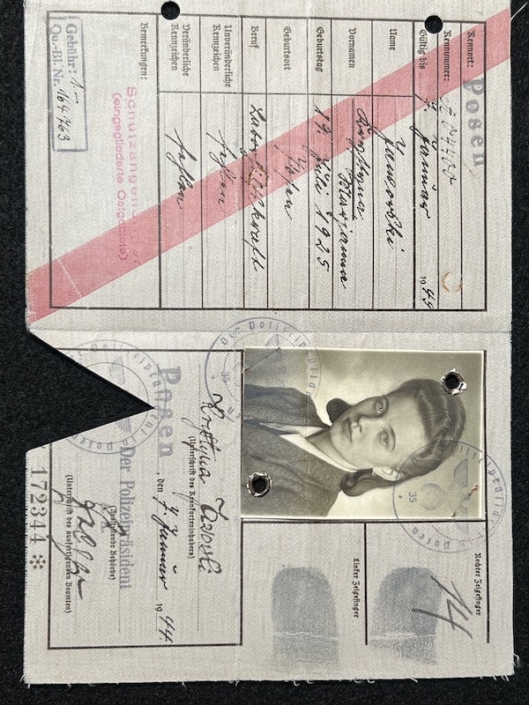 Posen
Kennort:
Kennummer:
Gültig bis 7. Januar 1944
Name
Vornamen Marjanna
Geburtstag 19. Juli 1925
Geburtsort Posen
Beruf
Unveränderliche Kennzeichen fehlen
Veränderliche Kennzeichen fehlen
Bemerkungen:
Schutzangehöriger
(eingegliederte Ostgebiete)
Gebühr: 1.-
Qu.-Bl. Nr. 164763
14
Rechter Zeigefinger
Linker Zeigefinger
Der Polizeipräsident
in Posen
35
(Unterschrift des Kennkarteninhabers)
Posen, den 7. Januar 1944.
Der Polizeipräsident
(Ausstellende Behörde)
(Unterschrift des ausfertigenden Beamten)
172344 *